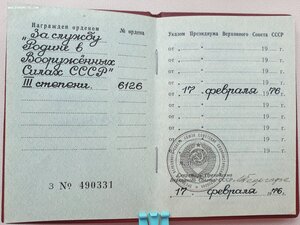 Награжден орденом
№ ордена
„За службу
Родине в
Вооружённых
Силах СССР"
III степени.
6126
З № 490331
Указом Президиума Верховного Совета СССР
от 19 г.
от 19 г.
от 19 г.
от 19 г.
от 17 февраля 1976 г.
от 19 г.
от 19 г.
от 19 г.
Секретарь Президиума
Верховного Совета СССР
17 февраля 1976 г.